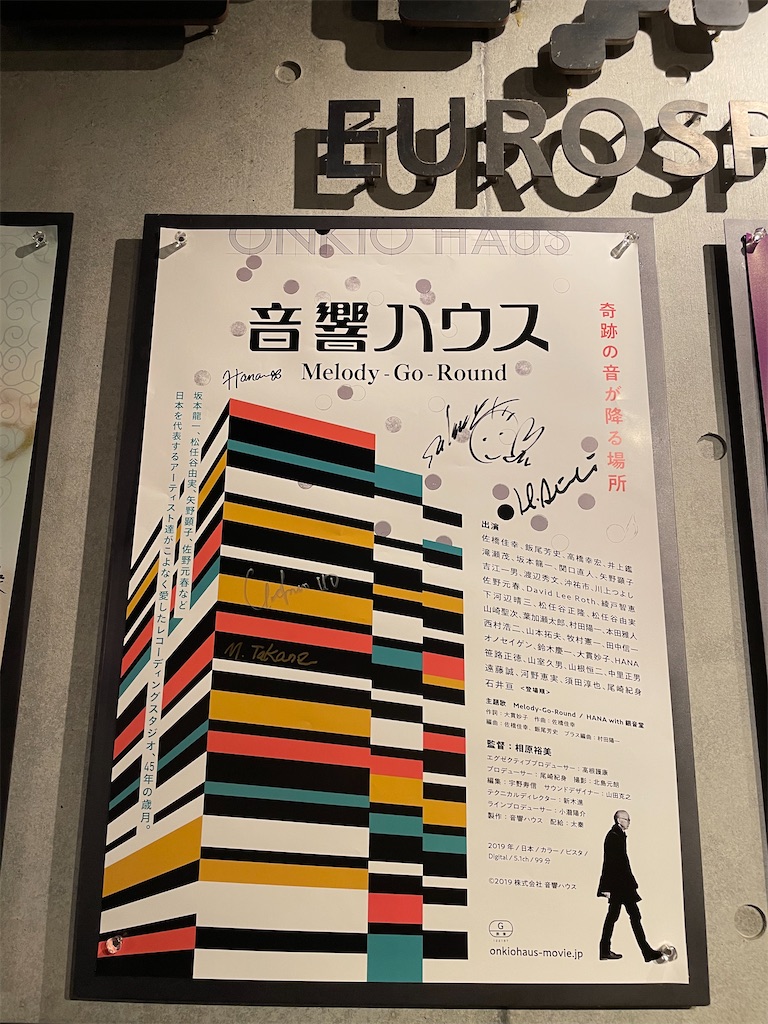 EUROSP
ONKIO HAUS
音響ハウス
Melody-Go-Round
奇跡の音が降る場所
Hana
坂本龍一、松任谷由実、矢野顕子、佐野元春など
日本を代表するアーティスト達がこよなく愛したレコーディングスタジオ、45年の歳月。
M. Takane
出演
佐橋佳幸、飯尾芳史、高橋幸宏、井上鑑
滝瀬茂、坂本龍一、関口直人、矢野顕子
吉江一男、渡辺秀文、沖祐市、川上つよし
佐野元春、David Lee Roth、綾戸智恵
下河辺晴三、松任谷正隆、松任谷由実
山崎聖次、葉加瀬太郎、村田陽一、本田雅人
西村浩二、山本拓夫、牧村憲一、田中信一
オノセイゲン、鈴木慶一、大貫妙子、HANA
笹路正徳、山室久男、山根恒二、中里正男
遠藤誠、河野恵実、須田淳也、尾崎紀身
石井亘 <登場順>
主題歌 Melody-Go-Round / HANA with 銀音堂
作詞：大貫妙子 作曲：佐橋佳幸
編曲：佐橋佳幸、飯尾芳史 ブラス編曲：村田陽一
監督：相原裕美
エグゼクティブプロデューサー：高根護康
プロデューサー：尾崎紀身 撮影：北島元朗
編集：宇野寿信 サウンドデザイナー：山田克之
テクニカルディレクター：新木進
ラインプロデューサー：小瀧陽介
製作：音響ハウス 配給：太秦
2019年/日本/カラー/ビスタ/
Digital/5.1ch/99分
©2019 株式会社 音響ハウス
G
onkiohaus-movie.jp